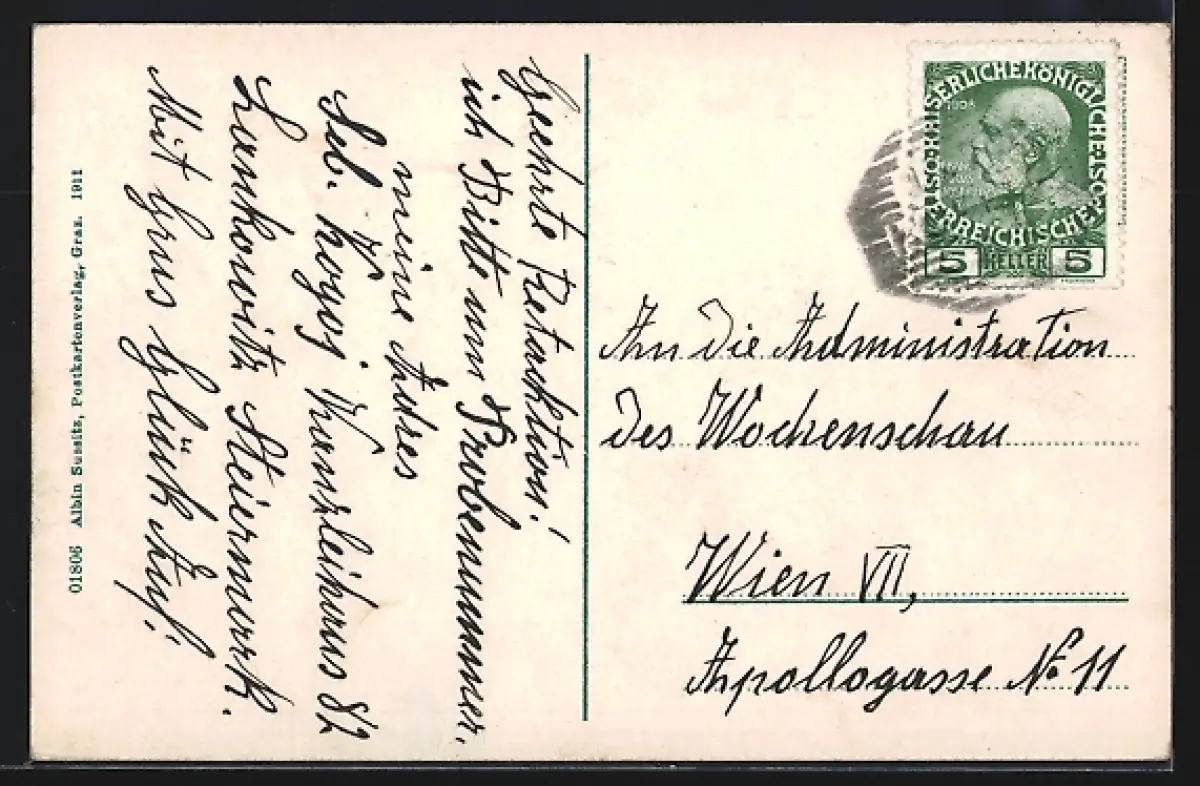 Geehrte Retacktion!
ich Bitte um Probenummer.
meine Adres
Seb. Kozoj Kanzleihaus 82
Lankowitz Steiermark.
Mit Grus Glück Auf!
01806 Albin Sussitz, Postkartenverlag, Graz. 1911
KAISERLICHE KÖNIGLICHE
ÖSTERREICHISCHE POST
1908
5 HELLER 5
An Die Administration
Des Wochenschau
Wien VII,
Apollogasse No 11